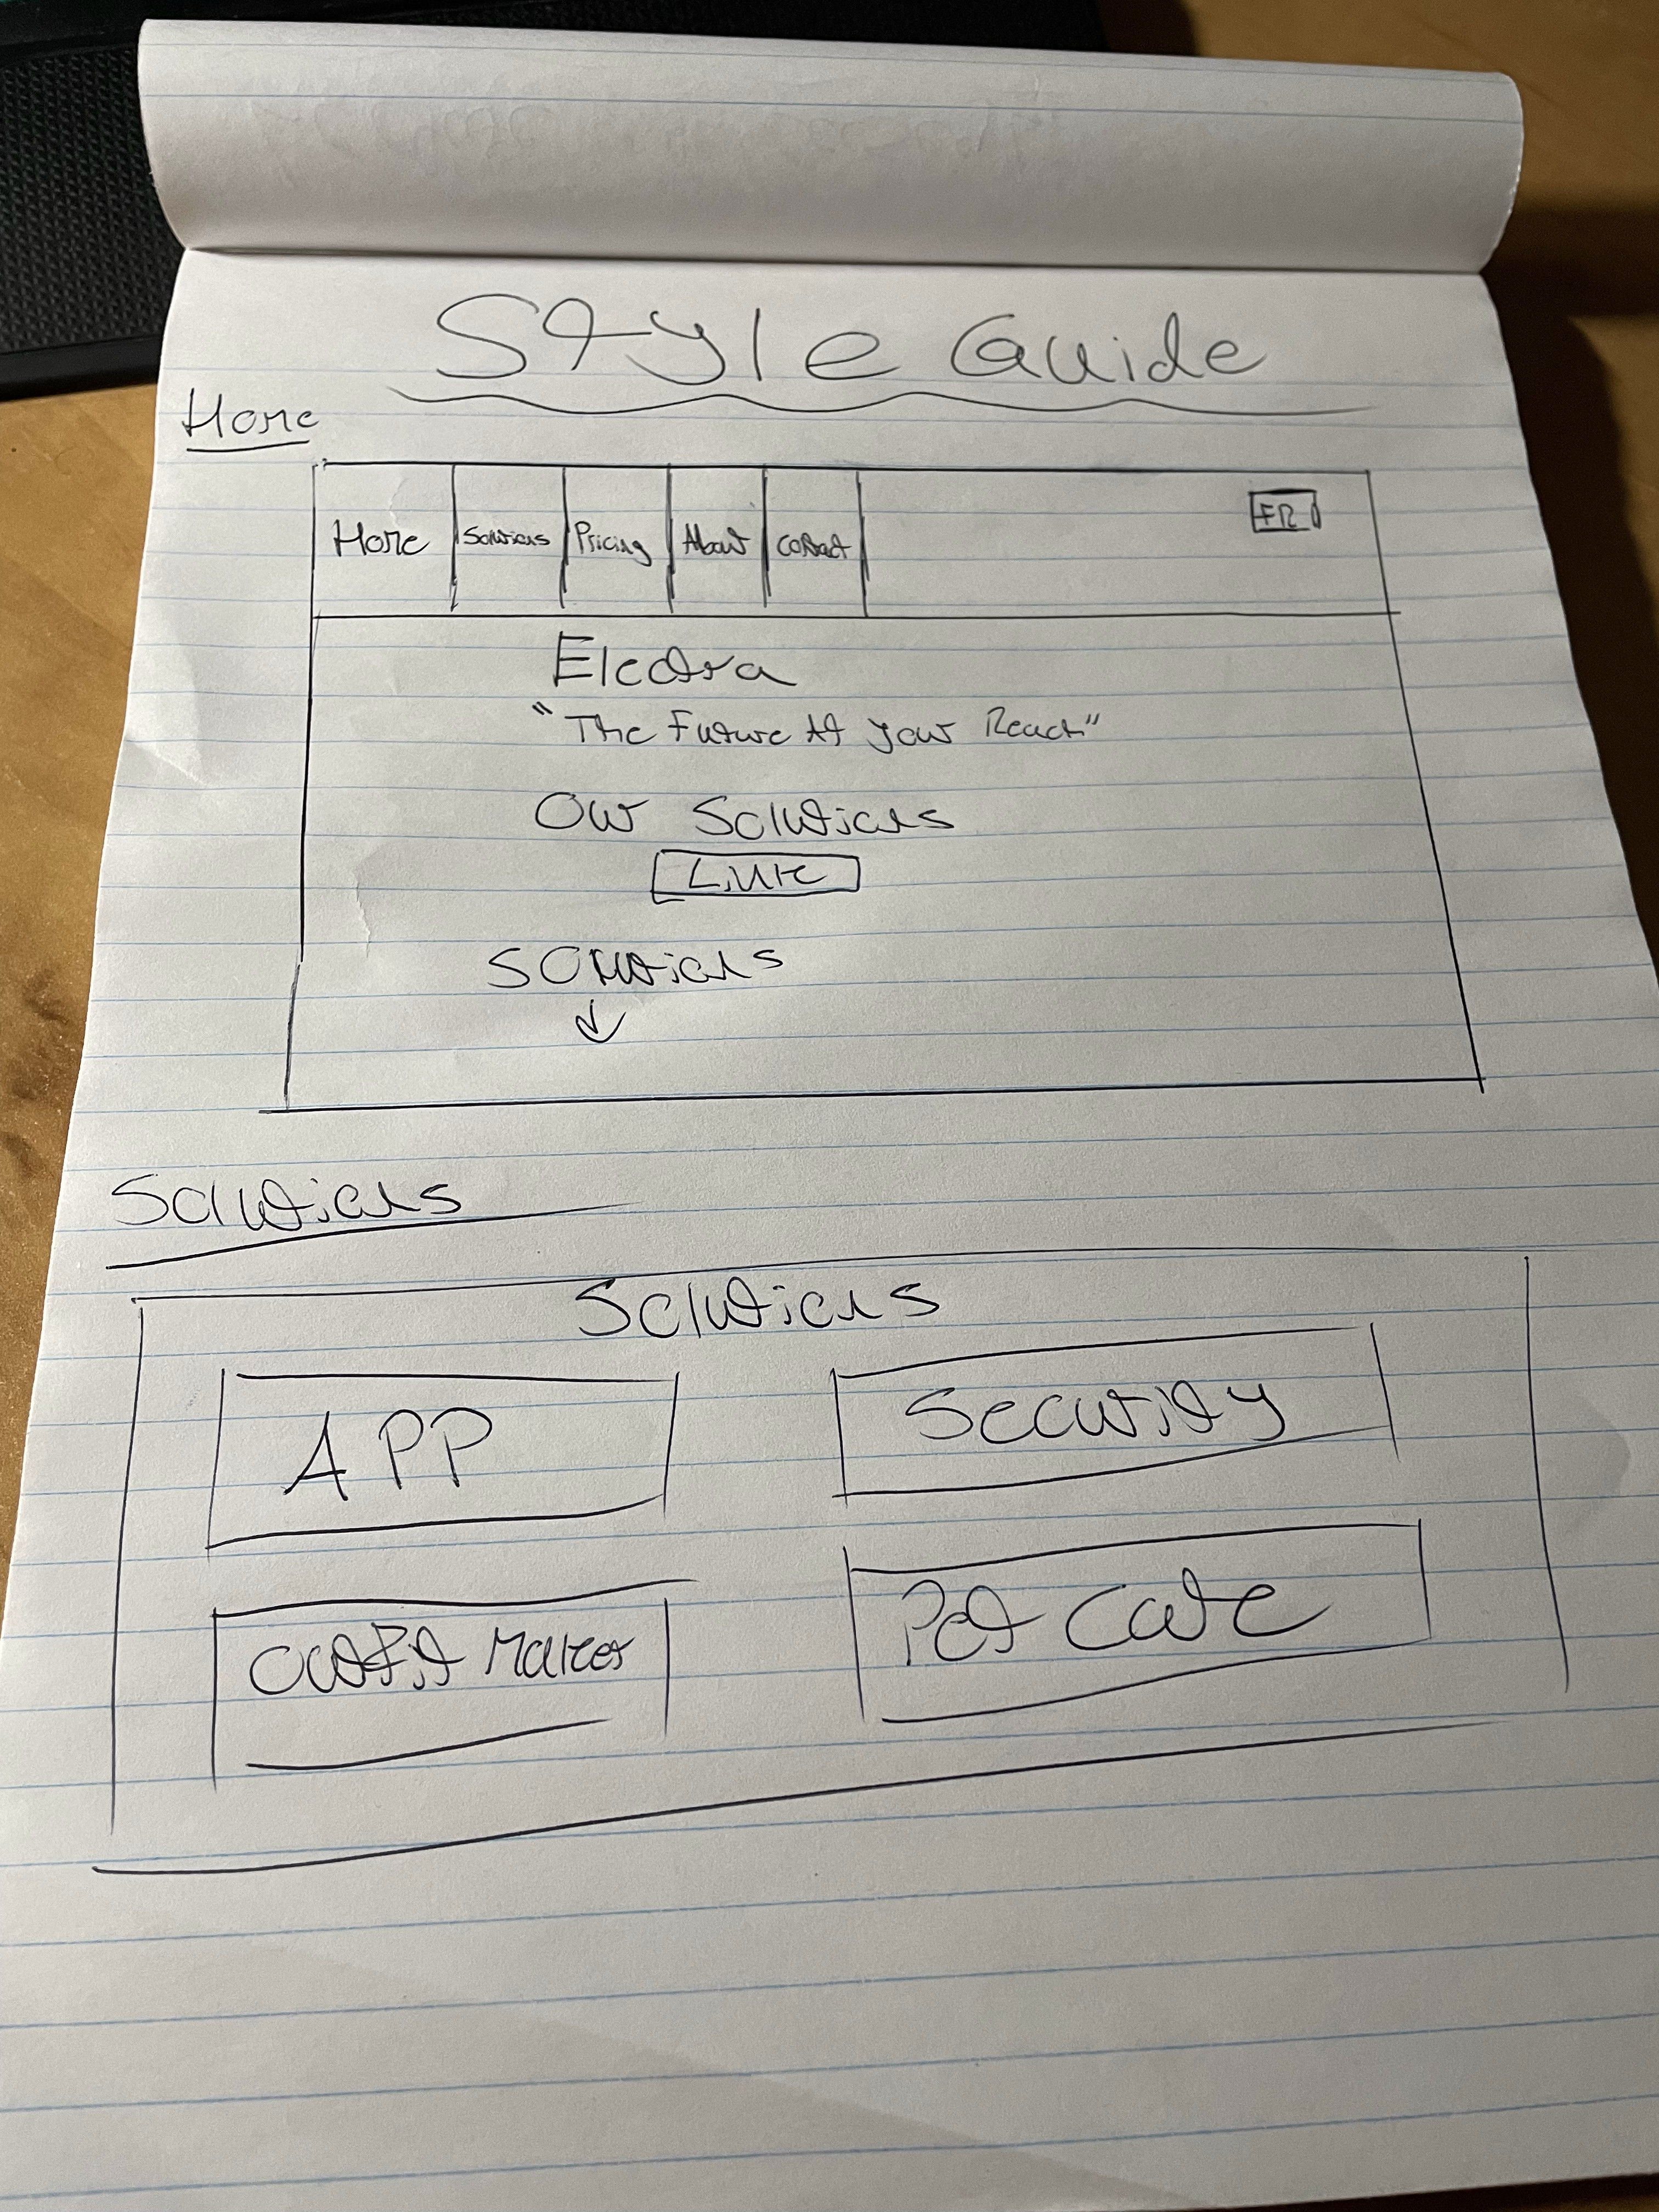 Style Guide
Home
Home Solutions Pricing About Contact FR
Electra
"The Future At your Reach"
Our Solutions
Link
Solutions
Solutions
Solutions
APP Security
Outfit Maker Pet Care